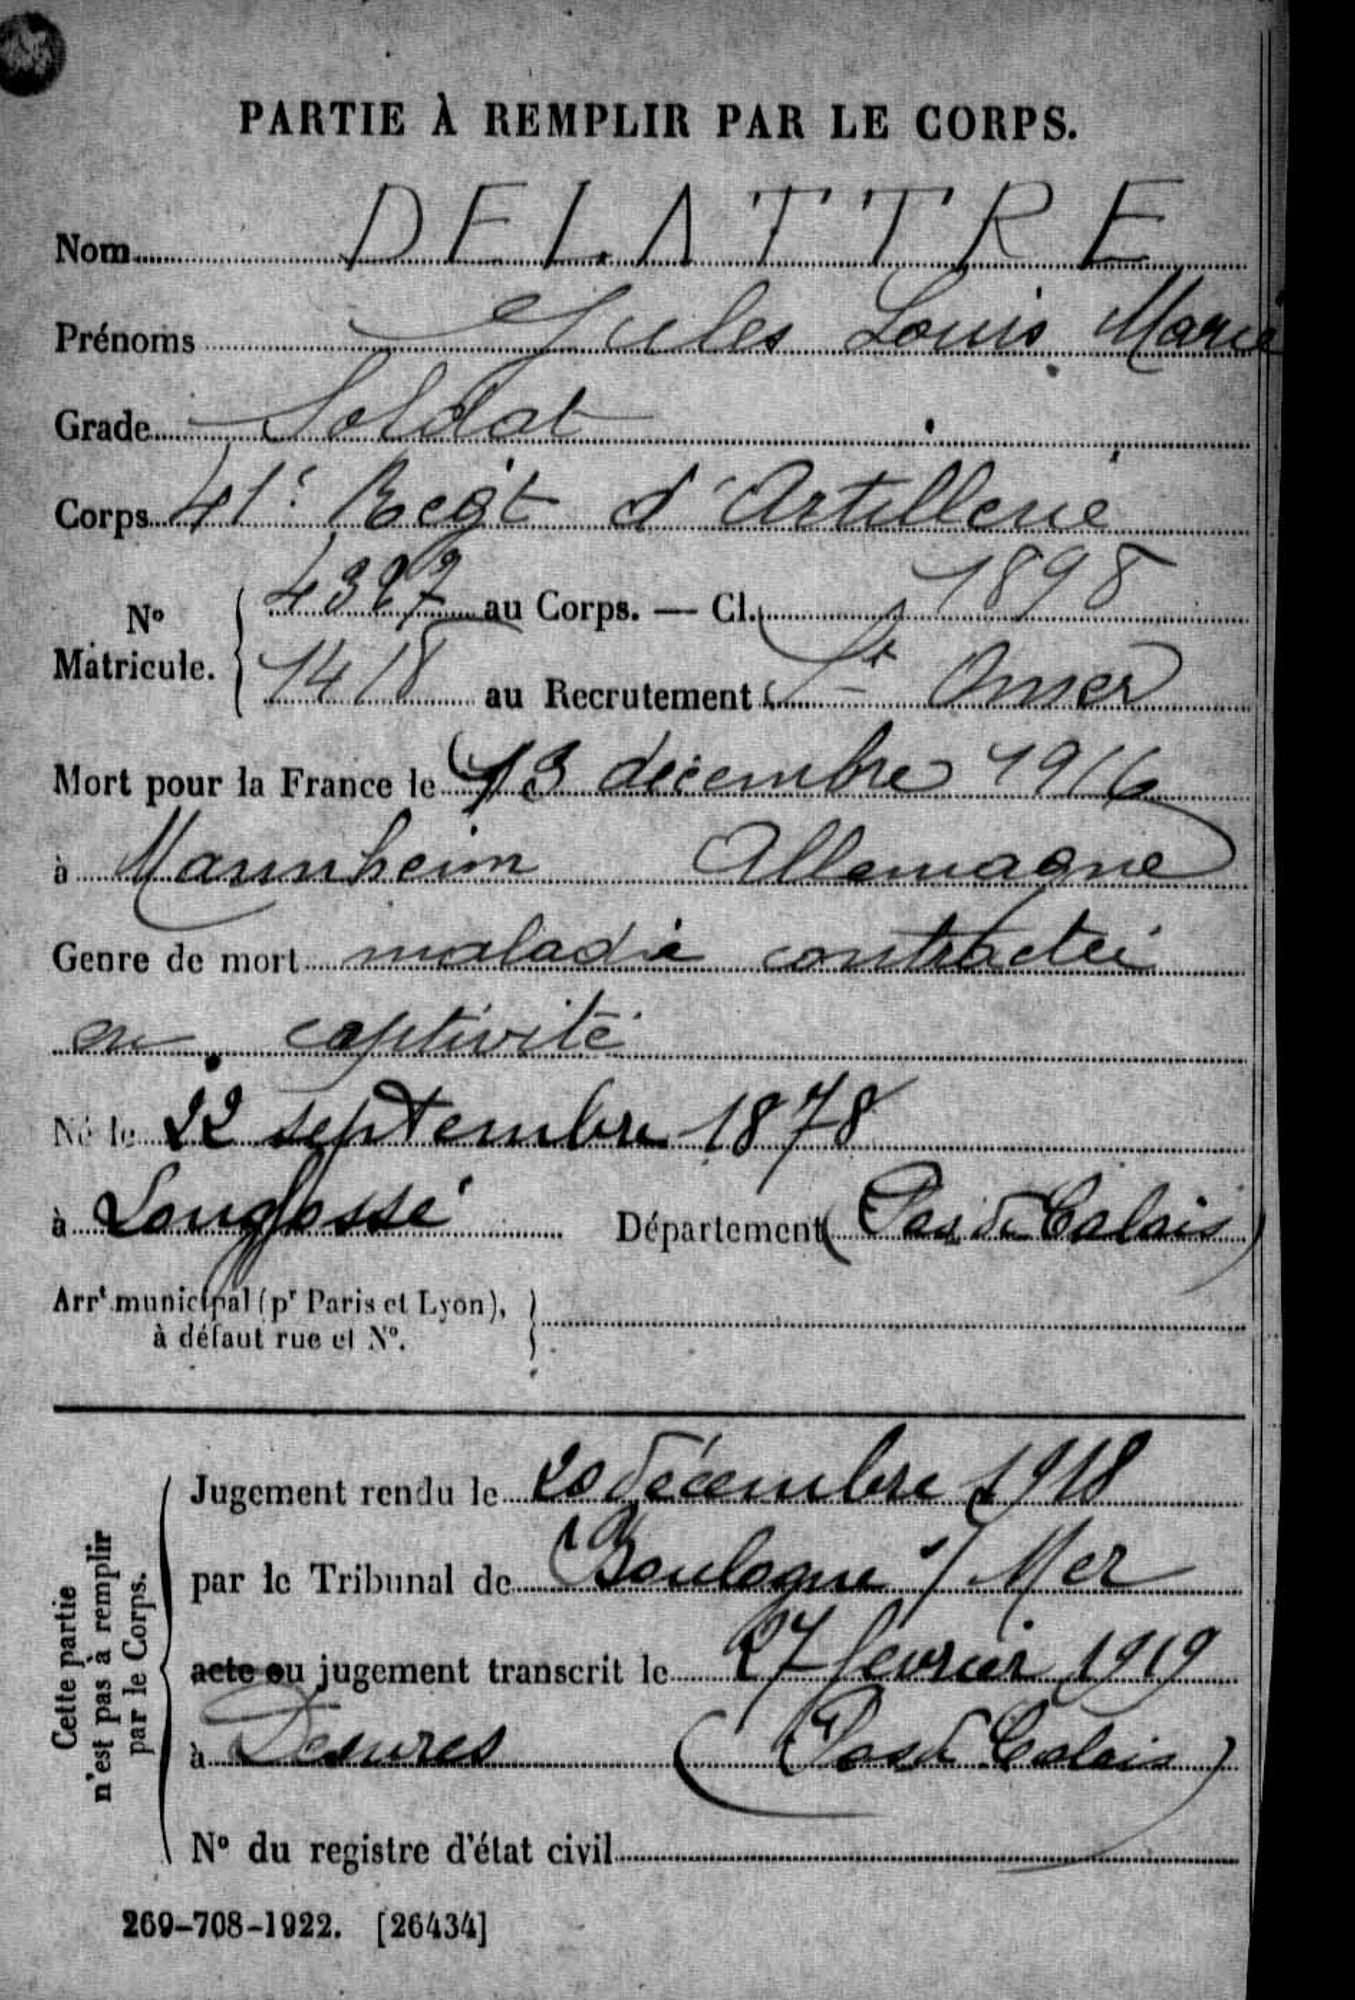 PARTIE À REMPLIR PAR LE CORPS.
Nom DELATTRE
Prénoms Jules Louis Marie
Grade Soldat
Corps 41e Regt d'Artillerie
No Matricule. 4327 au Corps. — Cl. 1898
1418 au Recrutement St Omer
Mort pour la France le 13 décembre 1916
à Mannheim Allemagne
Genre de mort maladie contractée
en captivité
Né le 22 septembre 1878
à Longfossé Département (Pas de Calais)
Arrt municipal (pr Paris et Lyon),
à défaut rue et No.
Cette partie
n'est pas à remplir
par le Corps.
Jugement rendu le 20 décembre 1918
par le Tribunal de Boulogne s/ Mer
acte ou jugement transcrit le 27 février 1919
à Desvres (Pas de Calais)
No du registre d'état civil
269-708-1922. [26434]